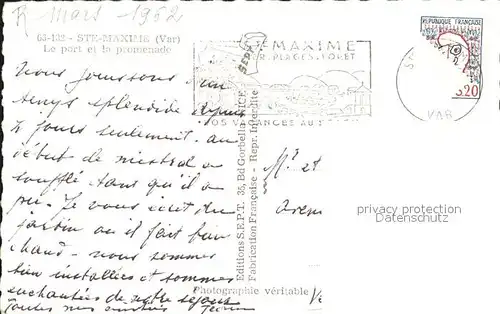 R Mars - 1962
65-132 - STE-MAXIME (Var)
Le port et la promenade
Nous jouissons d'un
temps splendide depuis
2 jours seulement. au
début le mistral a
soufflé tant qu'il a
pu. Je vous écris du
jardin où il fait bien
chaud - nous sommes
bien installées et sommes
enchantées de notre séjour
Toutes nos amitiés
Editions S.E.P.T. 35, Bd Gorbella - NICE
Fabrication Française - Repr. Interdite
Photographie véritable
E-MAXIME
PLAGES-FORET
VOS VACANCES AU
REPUBLIQUE FRANÇAISE
0.20
VAR
Mr et
privacy protection